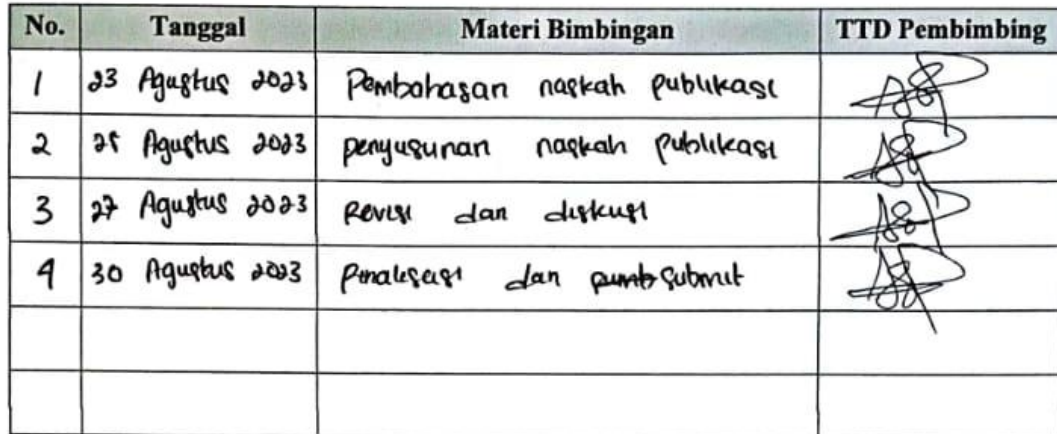 No. Tanggal Materi Bimbingan TTD Pembimbing
1 23 Agustus 2023 Pembahasan naskah publikasi
2 25 Agustus 2023 penyusunan naskah publikasi
3 27 Agustus 2023 Revisi dan diskusi
4 30 Agustus 2023 Finalisasi dan submit